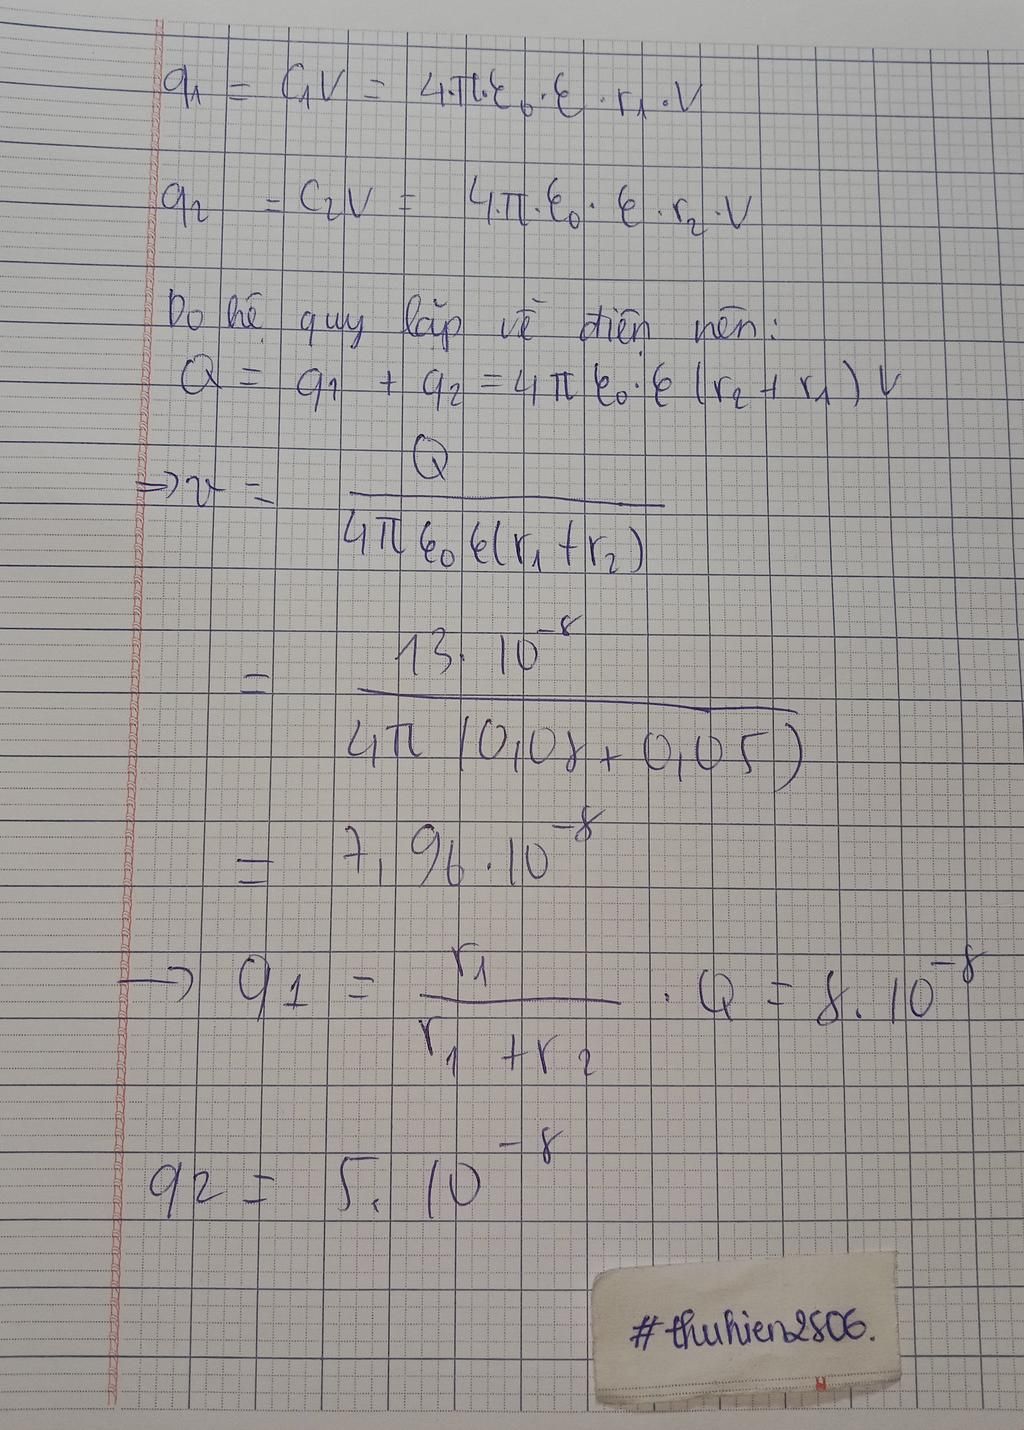 q₁ = C₁V = 4.π.ε₀.ε.r₁.V
q₂ = C₂V = 4.π.ε₀.ε.r₂.V
Do hệ quy lặp về điện nên:
Q = q₁ + q₂ = 4π ε₀.ε (r₂ + r₁) V
=> v = Q / 4π ε₀ ε(r₁ + r₂)
= 13.10⁻⁸ / 4π (0,08 + 0,05)
= 7,96.10⁻⁸
→ q₁ = r₁ / r₁ + r₂ . Q = 8.10⁻⁸
q₂ = 5.10⁻⁸
#thuhien2806.